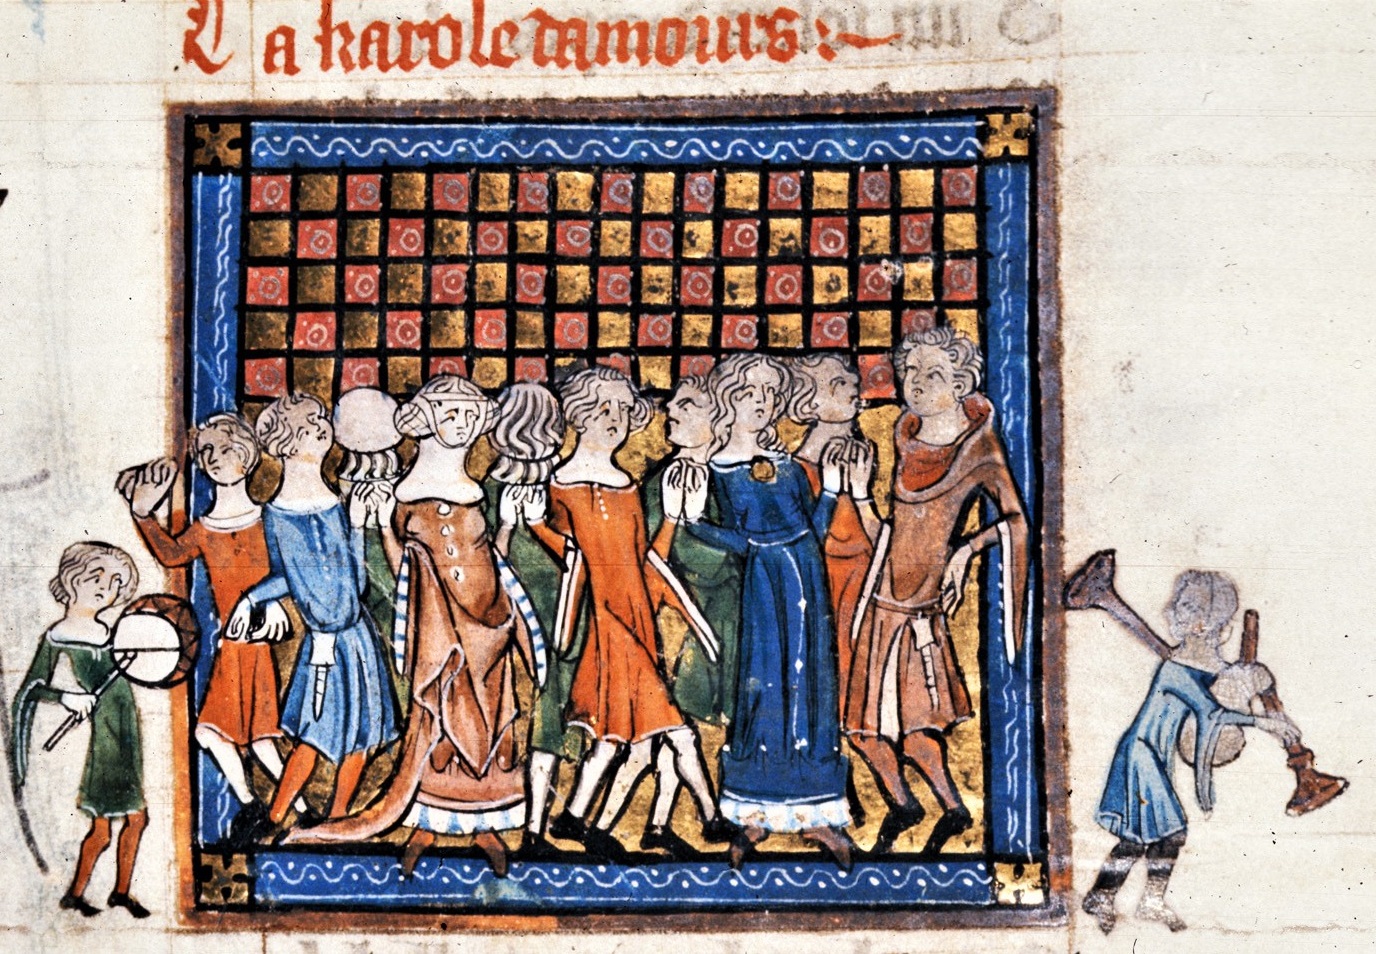 La karole damours: